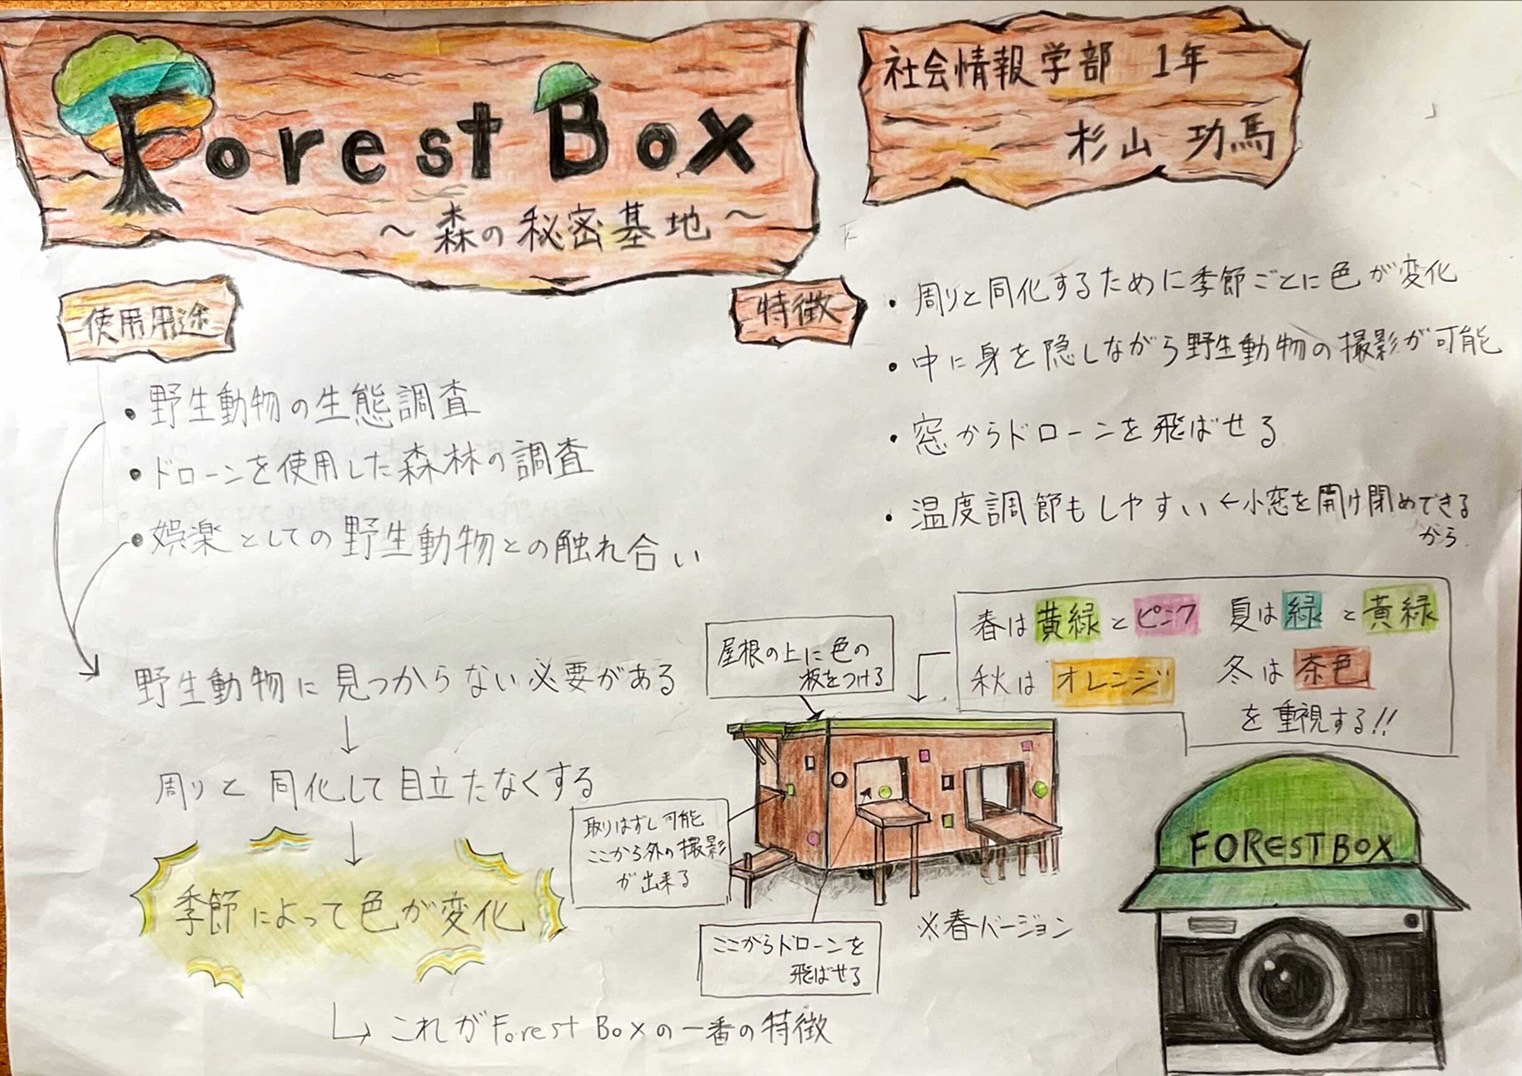 Forest Box
～森の秘密基地～
社会情報学部 1年
杉山 功馬
使用用途
・野生動物の生態調査
・ドローンを使用した森林の調査
・娯楽としての野生動物との触れ合い
野生動物に見つからない必要がある
↓
周りと同化して目立たなくする
↓
季節によって色が変化
↳これがForest Boxの一番の特徴
特徴
・周りと同化するために季節ごとに色が変化
・中に身を隠しながら野生動物の撮影が可能
・窓からドローンを飛ばせる
・温度調節もしやすい←小窓を開け閉めできる
から.
春は黄緑とピンク 夏は緑と黄緑
秋はオレンジ 冬は茶色
を重視する!!
屋根の上に色の
板をつける
取りはずし可能
ここから外の撮影
が出来る
ここからドローンを
飛ばせる
※春バージョン
FOREST BOX